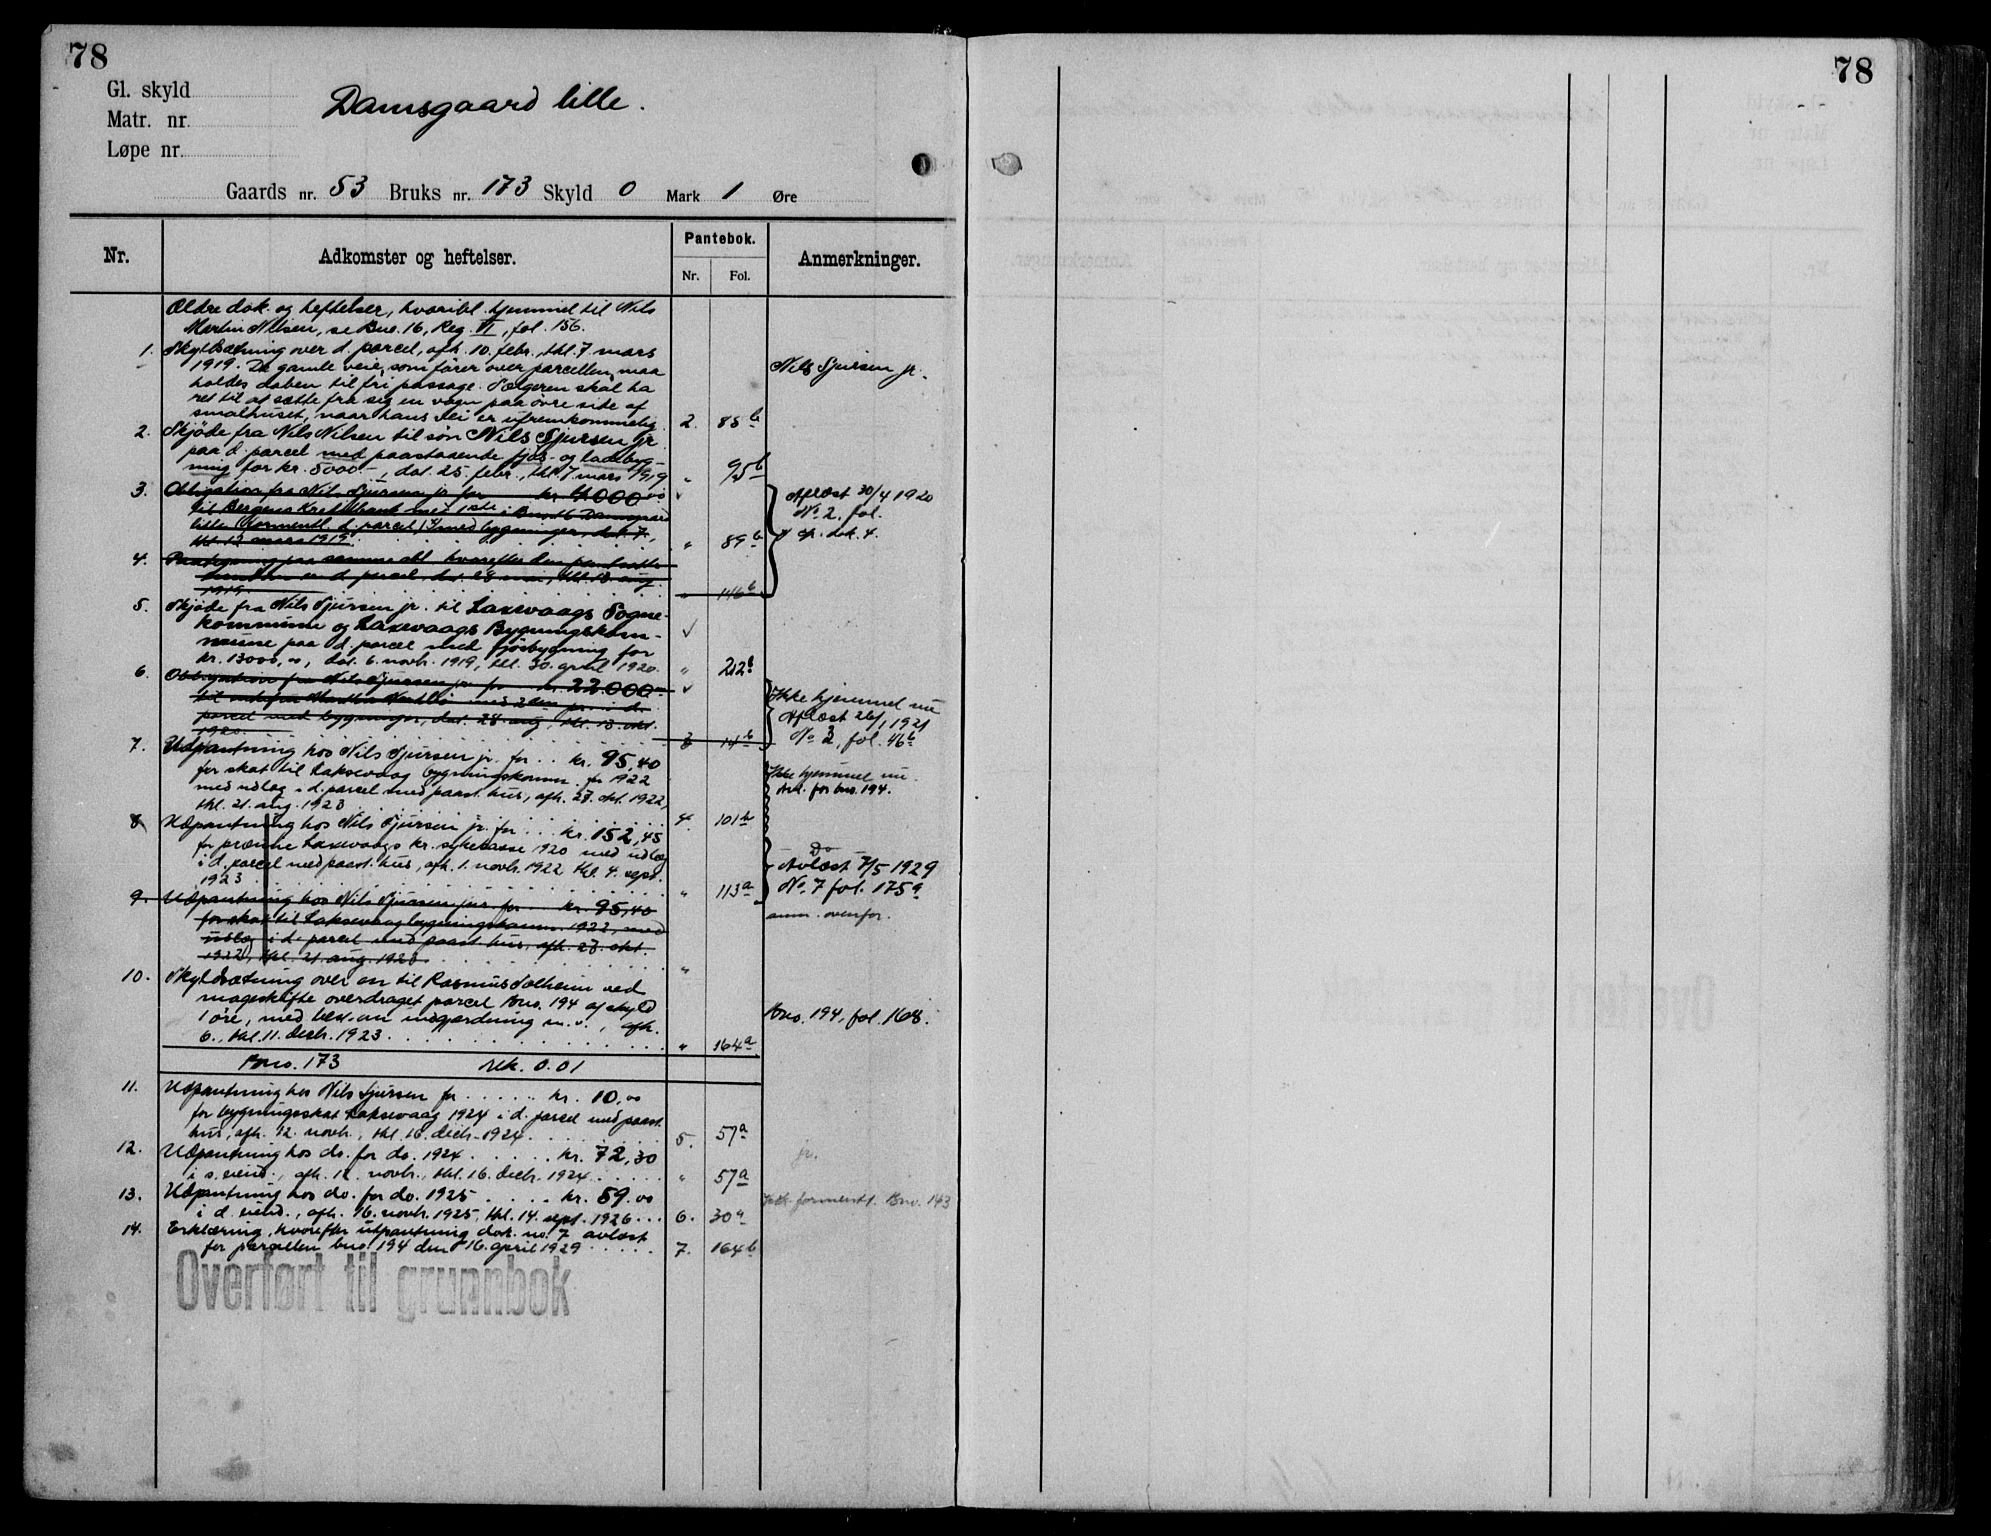 78
78
Gl. skyld
Matr. nr.
Løpe nr.
Damsgaard lille.
Gaards nr. 53 Bruks nr. 173 Skyld 0 Mark 1 Øre
Nr.
Adkomster og heftelser.
Pantebok.
Nr.
Fol.
Anmerkninger.
Ældre dok. og heftelser, hvoribl. hjemmel til Nils
Martin Nilsen, se Bno. 16, Reg. VI, fol. 156.
1. Skyldsætning over d. parcel, afh. 10. febr., thl. 7. mars
1919. De gamle veie, som fører over parcellen, maa
holdes aaben til fri passage. Sælgeren skal ha
ret til at sætte fra sig en vogn paa øvre side af
smalhuset, naar hans vei er ufremkommelig. 2. 85 b
Nils Sjursen jr.
2. Skjøde fra Nils Nilsen til søn Nils Sjursen jr
paa d. parcel med paastaaende fjøs- og ladebyg-
ning for kr. 5000.-, dat. 25 febr., thl. 7 mars 1919 " 95 b
3. Obligation fra Nils Sjursen jr. for kr. 4000,00
til Bergens Kreditbank med 1ste i Bno. 16 Damsgaard
lille (formentl. d. parcel) med bygninger, dat. 7.,
thl. 12 mars 1919. " 89 b
Aflæst 30/4 1920
No. 2, fol.
cfr. dok. 4.
4. Paategning paa samme obl. hvorefter den pantsatte
eiendom er d. parcel, dat. 28 mai, thl. 13. aug.
1919. " 146 b
5. Skjøde fra Nils Sjursen jr. til Laxevaags Sogne-
kommune og Laxevaags Bygningskom-
mune paa d. parcel med fjøsbygning for
kr. 13000,00, dat. 6. novb. 1919, thl. 30. april 1920. " 212 b
6. Obligation fra Nils Sjursen jr. for kr. 22.000
til enkefru Martha med 2den pr. i d.
parcel med bygninger, dat. 28. aug., thl. 13. okt.
1920. 3 14 b
Ikke hjemmel nu
Aflæst 26/1 1921
No. 3, fol. 46 b
7. Udpantning hos Nils Sjursen jr. for .. kr. 95,40
for skat til Laksevaag bygningskomm. for 1922
med udlæg i d. parcel med paast. hus, afh. 27. okt. 1922,
thl. 21. aug. 1923. 4. 101 b
Ikke hjemmel nu.
for bno. 194.
8. Udpantning hos Nils Sjursen jr. for ... kr. 152,45
for præmie Laxevaags kr. sykekasse 1920 med udlæg
i d. parcel med paast. hus, afh. 1. novb. 1922 thl. 4. sept.
1923. " 113 a
Do
Avlæst 7/5 1929
No. 7 fol. 175 a
9. Udpantning hos Nils Sjursen jun. for kr. 95,40
for skat til Laksevaag bygningskomm. 1922, med
udlæg i d. parcel med paast. hus, afh. 27. okt.
1922, thl. 21. aug. 1923. "
anm. ovenfor.
10. Skyldsætning over en til Rasmus Solheim ved
mageskifte overdraget parcel Bno. 194 af skyld
1 øre, med best. om indgjerdning m. v., afh.
6., thl. 11. decb. 1923. " 164 a
Bno. 194, fol. 168.
Bno. 173 0.01
11. Udpantning hos Nils Sjursen for ..... kr. 10,00
for bygningsskat Laksevaag 1924 i d. parcel med paast.
hus, afh. 12. novb., thl. 16. decb. 1924. 5. 57 a
12. Udpantning hos do. for do. 1924 ..... kr. 72,30
i s. eiend., afh. 12. novb., thl. 16. decb. 1924. " 57 a
jr.
13. Udpantning hos do. for do. 1925 .... kr. 59.00
i d. eiend., afh. 16. novb. 1925, thl. 14. sept. 1926 ... 6. 30 a
formentl. Bno. 143
14. Erklæring, hvorefter utpantning dok. no. 7 avlæst
for parcellen bno. 194 den 16. april 1929 ..... 7. 164 b
Overført til grunnbok